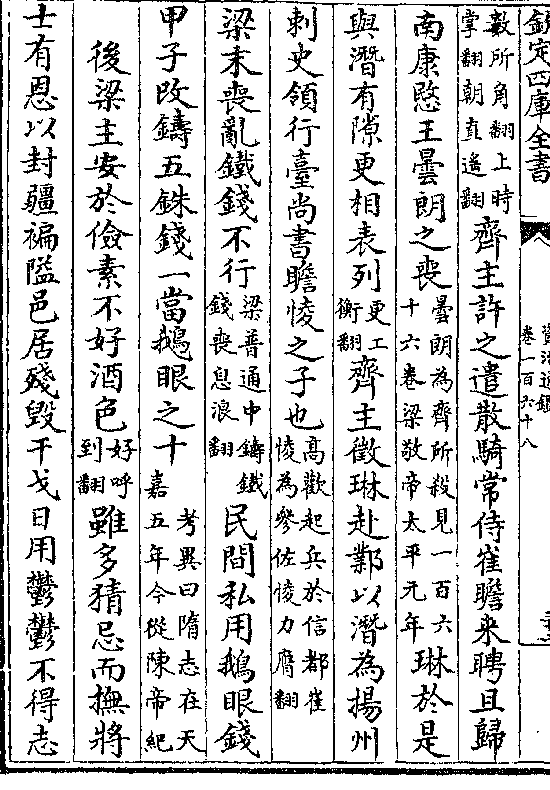 欽定四庫全書
資治通鑑
卷一百六十八
數所角翻上時
掌翻朝直遙翻
齊主許之遣散騎常侍崔瞻來聘且歸
南康愍王曇朗之喪
曇朗為齊所殺見一百六
十六卷梁敬帝太平元年
琳於是
與潛有隙更相表列
更工
衡翻
齊主徵琳赴鄴以潛為揚州
刺史領行臺尚書瞻㥄之子也
高歡起兵於信都崔
㥄為參佐㥄力膺翻
梁末喪亂鐵錢不行
梁普通中鑄鐵
錢喪息浪翻
民間私用鵝眼錢
甲子改鑄五銖錢一當鵝眼之十
考異曰隋志在天
嘉五年今從陳帝紀
後梁主安於儉素不好酒色
好呼
到翻
雖多猜忌而撫將
士有恩以封疆褊隘邑居殘毀干戈日用鬱鬱不得志